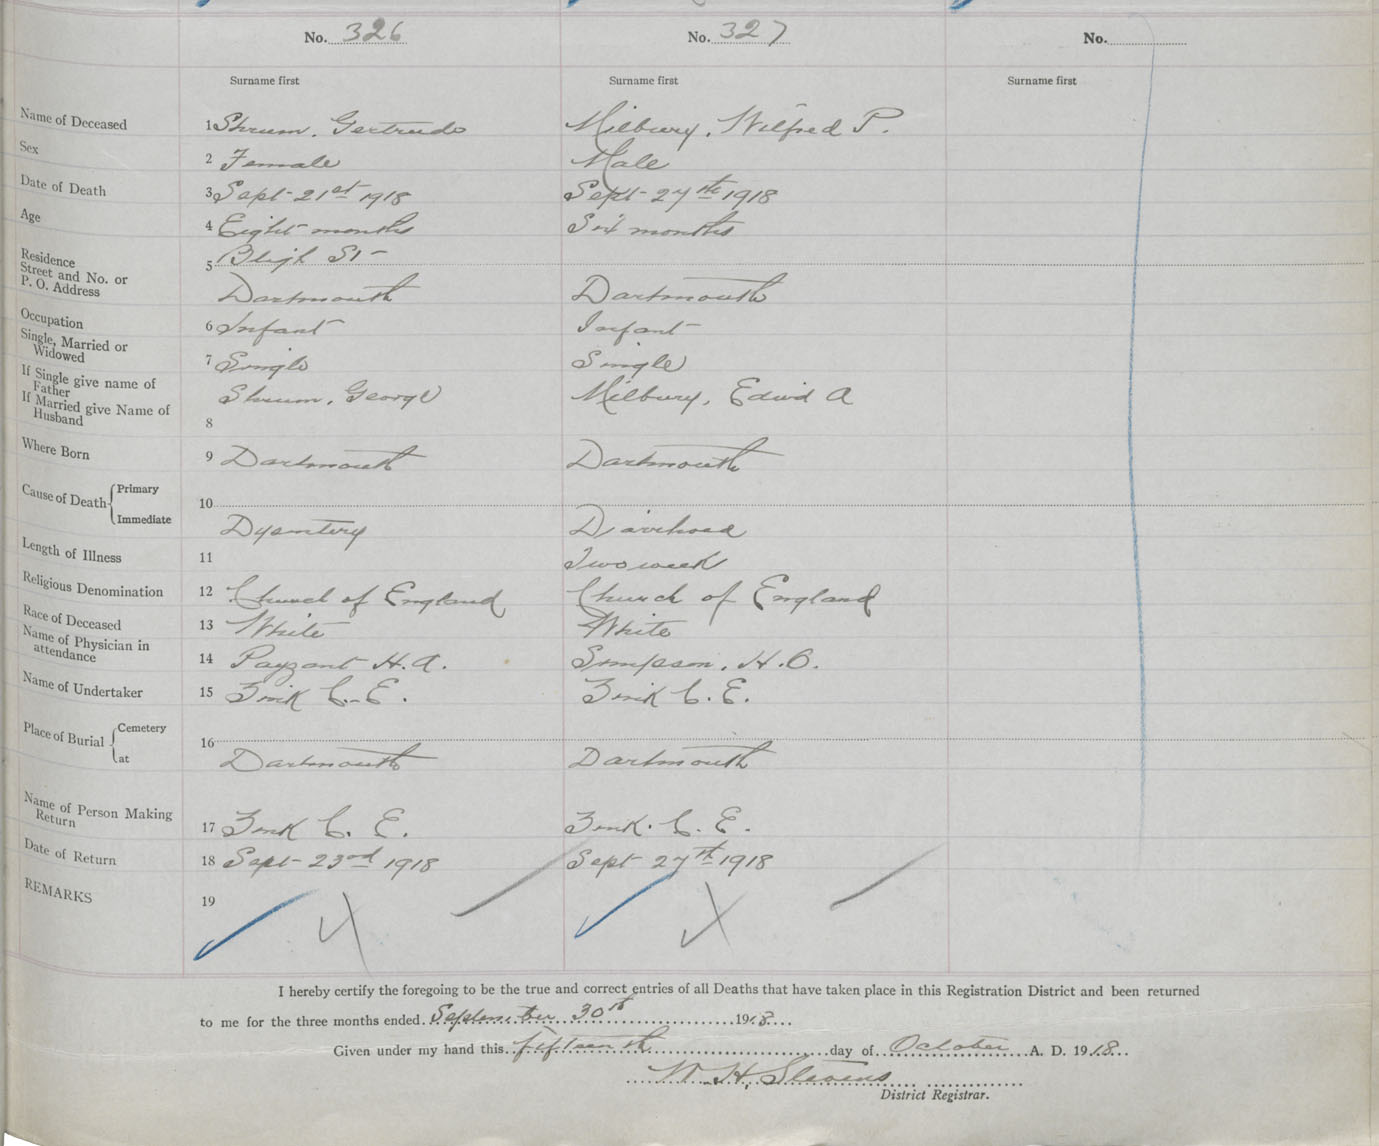 No. 326 No. 327 No.
Surname first Surname first Surname first
Name of Deceased 1 Shrum, Gertrude Milbury, Wilfred P.
Sex 2 Female Male
Date of Death 3 Sept- 21st 1918 Sept- 27th 1918
Age 4 Eight months Six months
Residence Bligh St-
Street and No. or 5
P. O. Address Dartmouth Dartmouth
Occupation 6 Infant Infant
Single, Married or
Widowed 7 Single Single
If Single give name of
Father Shrum, George Milbury, Edwid A
If Married give Name of
Husband 8
Where Born 9 Dartmouth Dartmouth
Cause of Death Primary 10
Immediate Dysentery Diarrhoea
Length of Illness 11 Two week
Religious Denomination 12 Church of England Church of England
Race of Deceased 13 White White
Name of Physician in
attendance 14 Payzant H. A. Simpson, H. O.
Name of Undertaker 15 Zink C. E. Zink C. E.
Place of Burial Cemetery 16
at Dartmouth Dartmouth
Name of Person Making
Return 17 Zink C. E. Zink. C. E.
Date of Return 18 Sept- 23rd 1918 Sept 27th 1918
REMARKS 19
I hereby certify the foregoing to be the true and correct entries of all Deaths that have taken place in this Registration District and been returned
to me for the three months ended September 30th 1918
Given under my hand this fifteenth day of October A. D. 1918
W. H. Stevens
District Registrar.